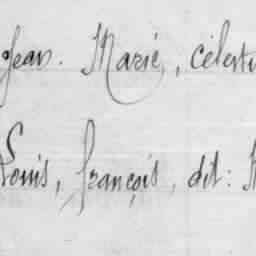 Jean. Marie, célest
Louis, françois, dit: